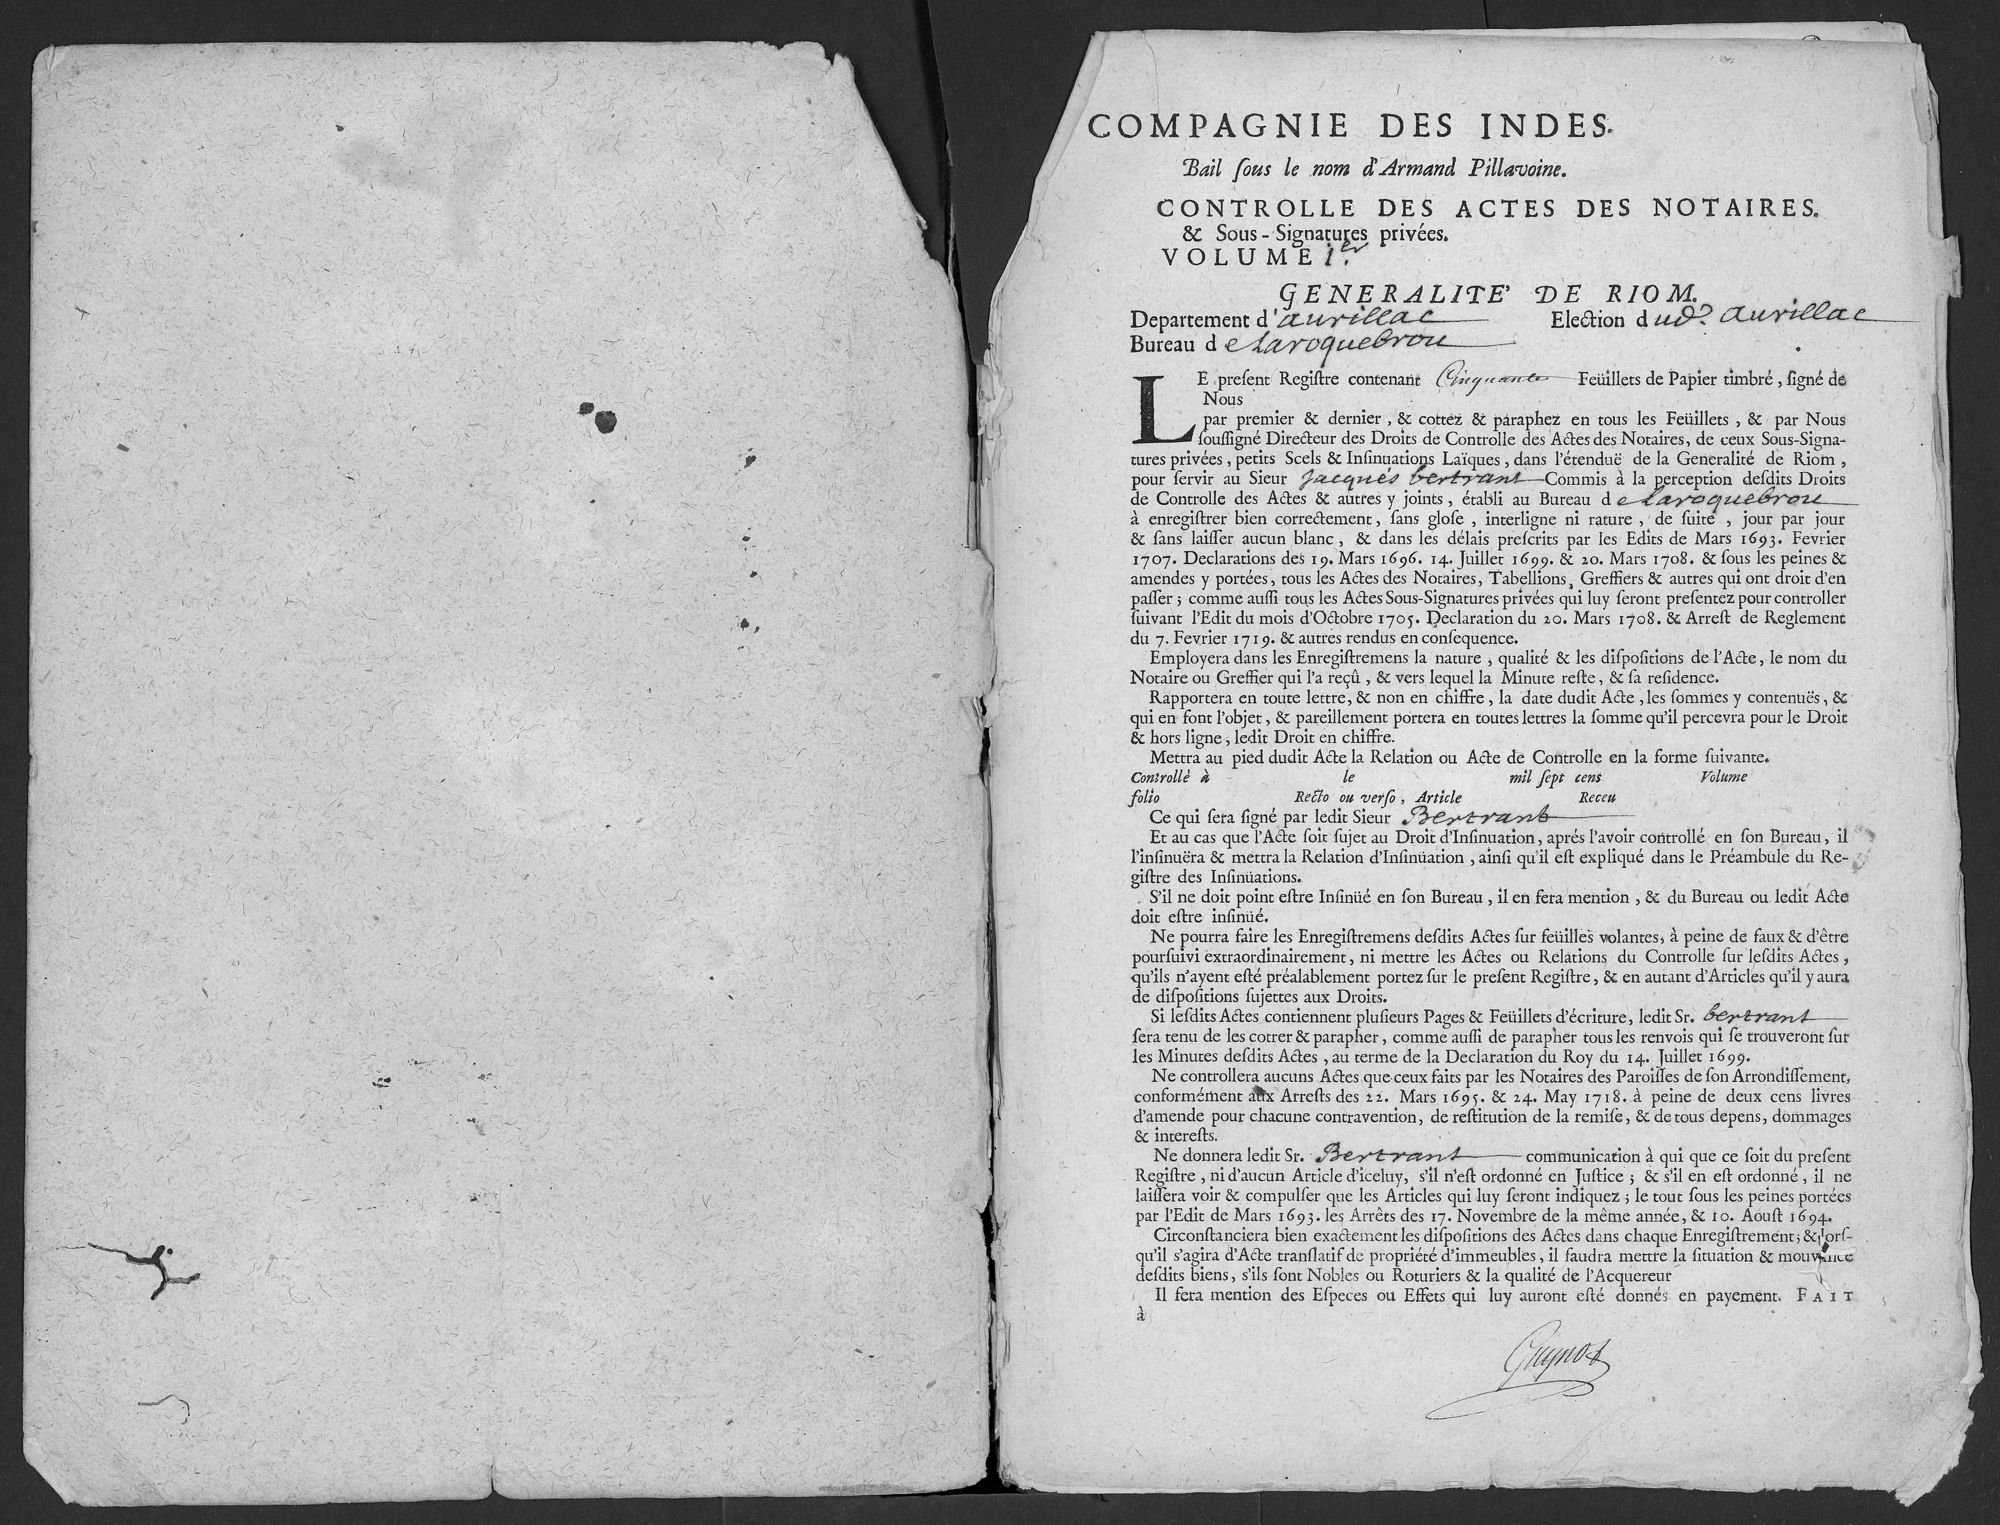 COMPAGNIE DES INDES.
Bail ſous le nom d'Armand Pillavoine.
CONTROLLE DES ACTES DES NOTAIRES.
& Sous-Signatures privées.
VOLUME 1.er
GENERALITE' DE RIOM.
Departement d'aurillac Election dud.? aurillac
Bureau de Laroquebrou
LE preſent Regiſtre contenant Cinquante Feüillets de Papier timbré, ſigné de
Nous
par premier & dernier, & cottez & paraphez en tous les Feüillets, & par Nous
ſouſſigné Directeur des Droits de Controlle des Actes des Notaires, de ceux Sous-Signa-
tures privées, petits Scels & Inſinuations Laïques, dans l'étenduë de la Generalité de Riom,
pour ſervir au Sieur Jacques bertrant Commis à la perception deſdits Droits
de Controlle des Actes & autres y joints, établi au Bureau de Laroquebrou
à enregiſtrer bien correctement, ſans gloſe, interligne ni rature, de ſuite, jour par jour
& ſans laiſſer aucun blanc, & dans les délais preſcrits par les Edits de Mars 1693. Fevrier
1707. Declarations des 19. Mars 1696. 14. Juillet 1699. & 20. Mars 1708. & ſous les peines &
amendes y portées, tous les Actes des Notaires, Tabellions, Greffiers & autres qui ont droit d'en
paſſer; comme auſſi tous les Actes Sous-Signatures privées qui luy ſeront preſentez pour controller
ſuivant l'Edit du mois d'Octobre 1705. Declaration du 20. Mars 1708. & Arreſt de Reglement
du 7. Fevrier 1719. & autres rendus en conſequence.
Employera dans les Enregiſtremens la nature, qualité & les diſpoſitions de l'Acte, le nom du
Notaire ou Greffier qui l'a reçû, & vers lequel la Minute reſte, & ſa reſidence.
Rapportera en toute lettre, & non en chiffre, la date dudit Acte, les ſommes y contenuës, &
qui en font l'objet, & pareillement portera en toutes lettres la ſomme qu'il percevra pour le Droit
& hors ligne, ledit Droit en chiffre.
Mettra au pied dudit Acte la Relation ou Acte de Controlle en la forme ſuivante.
Controllé à le mil ſept cens Volume
folio Recto ou verſo, Article Receu
Ce qui ſera ſigné par ledit Sieur Bertrant
Et au cas que l'Acte ſoit ſujet au Droit d'Inſinuation, aprés l'avoir controllé en ſon Bureau, il
l'inſinuëra & mettra la Relation d'Inſinüation, ainſi qu'il eſt expliqué dans le Préambule du Re-
giſtre des Inſinüations.
S'il ne doit point eſtre Inſinüé en ſon Bureau, il en fera mention, & du Bureau ou ledit Acte
doit eſtre inſinüé.
Ne pourra faire les Enregiſtremens deſdits Actes ſur feüilles volantes, à peine de faux & d'être
pourſuivi extraordinairement, ni mettre les Actes ou Relations du Controlle ſur leſdits Actes,
qu'ils n'ayent eſté préalablement portez ſur le preſent Regiſtre, & en autant d'Articles qu'il y aura
de diſpoſitions ſujettes aux Droits.
Si leſdits Actes contiennent pluſieurs Pages & Feüillets d'écriture, ledit Sr. bertrant
ſera tenu de les cotter & parapher, comme auſſi de parapher tous les renvois qui ſe trouveront ſur
les Minutes deſdits Actes, au terme de la Declaration du Roy du 14. Juillet 1699.
Ne controllera aucuns Actes que ceux faits par les Notaires des Paroiſſes de ſon Arrondiſſement,
conformément aux Arreſts des 22. Mars 1695. & 24. May 1718. à peine de deux cens livres
d'amende pour chacune contravention, de reſtitution de la remiſe, & de tous depens, dommages
& intereſts.
Ne donnera ledit Sr. Bertrant communication à qui que ce ſoit du preſent
Regiſtre, ni d'aucun Article d'iceluy, s'il n'eſt ordonné en Juſtice; & s'il en eſt ordonné, il ne
laiſſera voir & compulſer que les Articles qui luy ſeront indiquez; le tout ſous les peines portées
par l'Edit de Mars 1693. les Arrêts des 17. Novembre de la même année, & 10. Aouſt 1694.
Circonſtanciera bien exactement les diſpoſitions des Actes dans chaque Enregiſtrement; & lorſ-
qu'il s'agira d'Acte tranſlatif de propriété d'immeubles, il faudra mettre la ſituation & mouvance
deſdits biens, s'ils ſont Nobles ou Roturiers & la qualité de l'Acquereur
Il ſera mention des Eſpeces ou Effets qui luy auront eſté donnés en payement. FAIT
à
Guynot